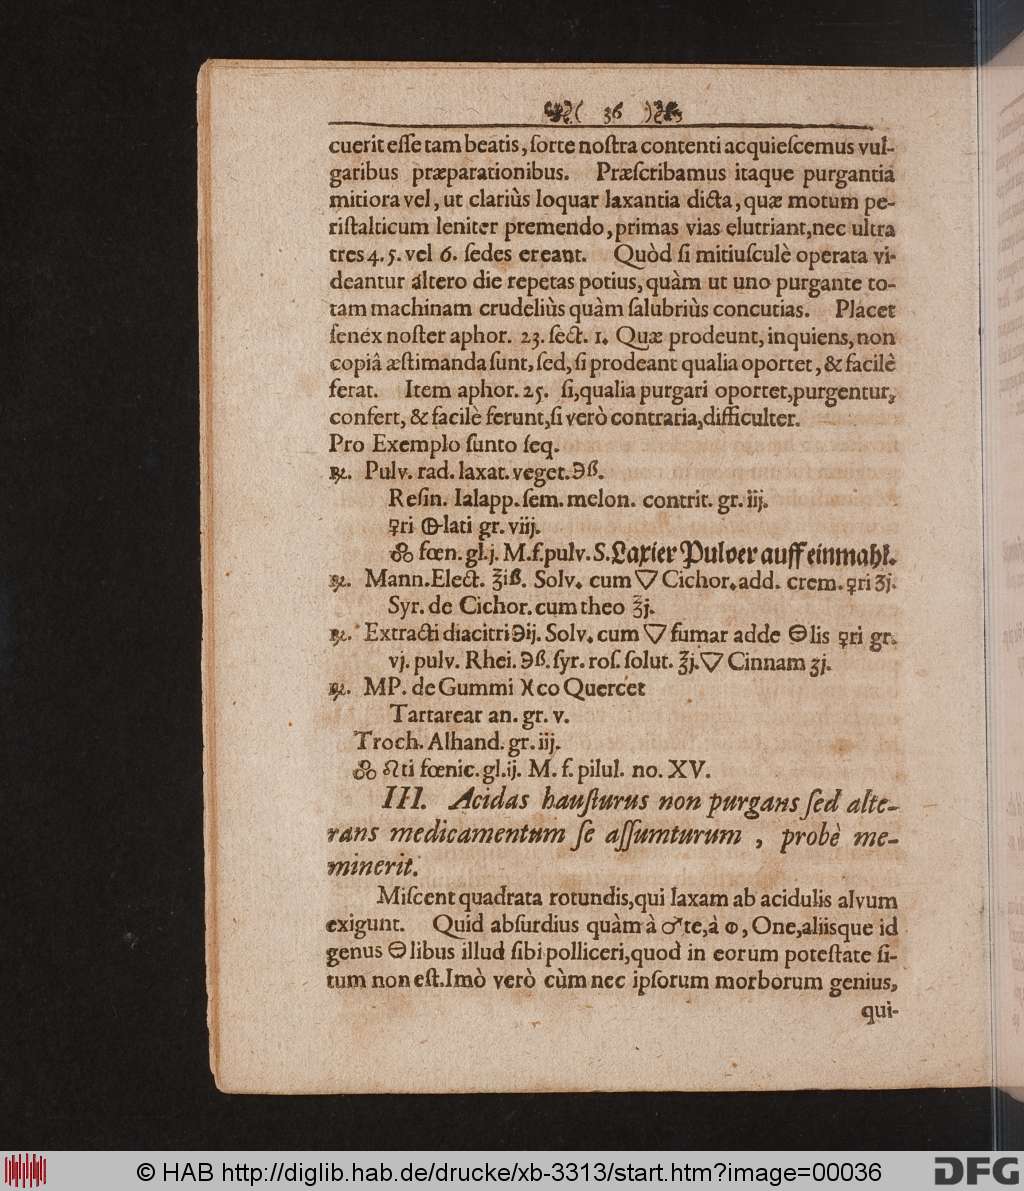 ( 36 )
cuerit eſſe tam beatis, ſorte noſtra contenti acquieſcemus vul-
garibus præparationibus. Præſcribamus itaque purgantia
mitiora vel, ut clariùs loquar laxantia dicta, quæ motum pe-
riſtalticum leniter premendo, primas vias elutriant, nec ultra
tres 4. 5. vel 6. ſedes creant. Quòd ſi mitiuſculè operata vi-
deantur áltero die repetas potius, quàm ut uno purgante to-
tam machinam crudeliùs quàm ſalubriùs concutias. Placet
ſenex noſter aphor. 23. ſect. 1. Quæ prodeunt, inquiens, non
copiâ æſtimanda ſunt, ſed, ſi prodeant qualia oportet, & facilè
ferat. Item aphor. 25. ſi, qualia purgari oportet, purgentur,
confert, & facilè ferunt, ſi verò contraria, difficulter.
Pro Exemplo ſunto ſeq.
℞. Pulv. rad. laxat. veget. ℈ß.
Reſin. Ialapp. ſem. melon. contrit. gr. iij.
♀ri lati gr. viij.
fœn. gl. j. M. f. pulv. S. Laxier Pulver auff einmahl.
℞. Mann. Elect. ℥iß. Solv. cum ▽ Cichor. add. crem. ♀ri ʒj.
Syr. de Cichor. cum theo ℥j.
℞. Extracti diacitri ℈ij. Solv. cum ▽ fumar adde ⊖lis ♀ri gr.
vj. pulv. Rhei. ℈ß. ſyr. roſ. ſolut. ℥j. ▽ Cinnam ʒj.
℞. MP. de Gummi co Quercet
Tartarear an. gr. v.
Troch. Alhand. gr. iij.
ti fœnic. gl. ij. M. f. pilul. no. XV.
III. Acidas hauſturus non purgans ſed alte-
rans medicamentum ſe aſſumturum , probè me-
minerit.
Miſcent quadrata rotundis, qui laxam ab acidulis alvum
exigunt. Quid abſurdius quàm à ♂te, à , One, aliisque id
genus ⊖libus illud ſibi polliceri, quod in eorum poteſtate ſi-
tum non eſt. Imò verò cùm nec ipſorum morborum genius,
qui-
© HAB http://diglib.hab.de/drucke/xb-3313/start.htm?image=00036
DFG